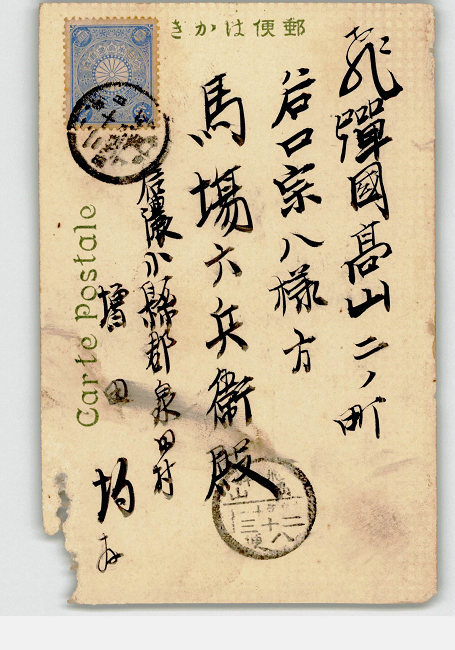 郵便はかき
飛彈國高山二ノ町
谷口宗八様方
馬場六兵衛殿
信濃小縣郡泉田村
増田
均
Carte Postale